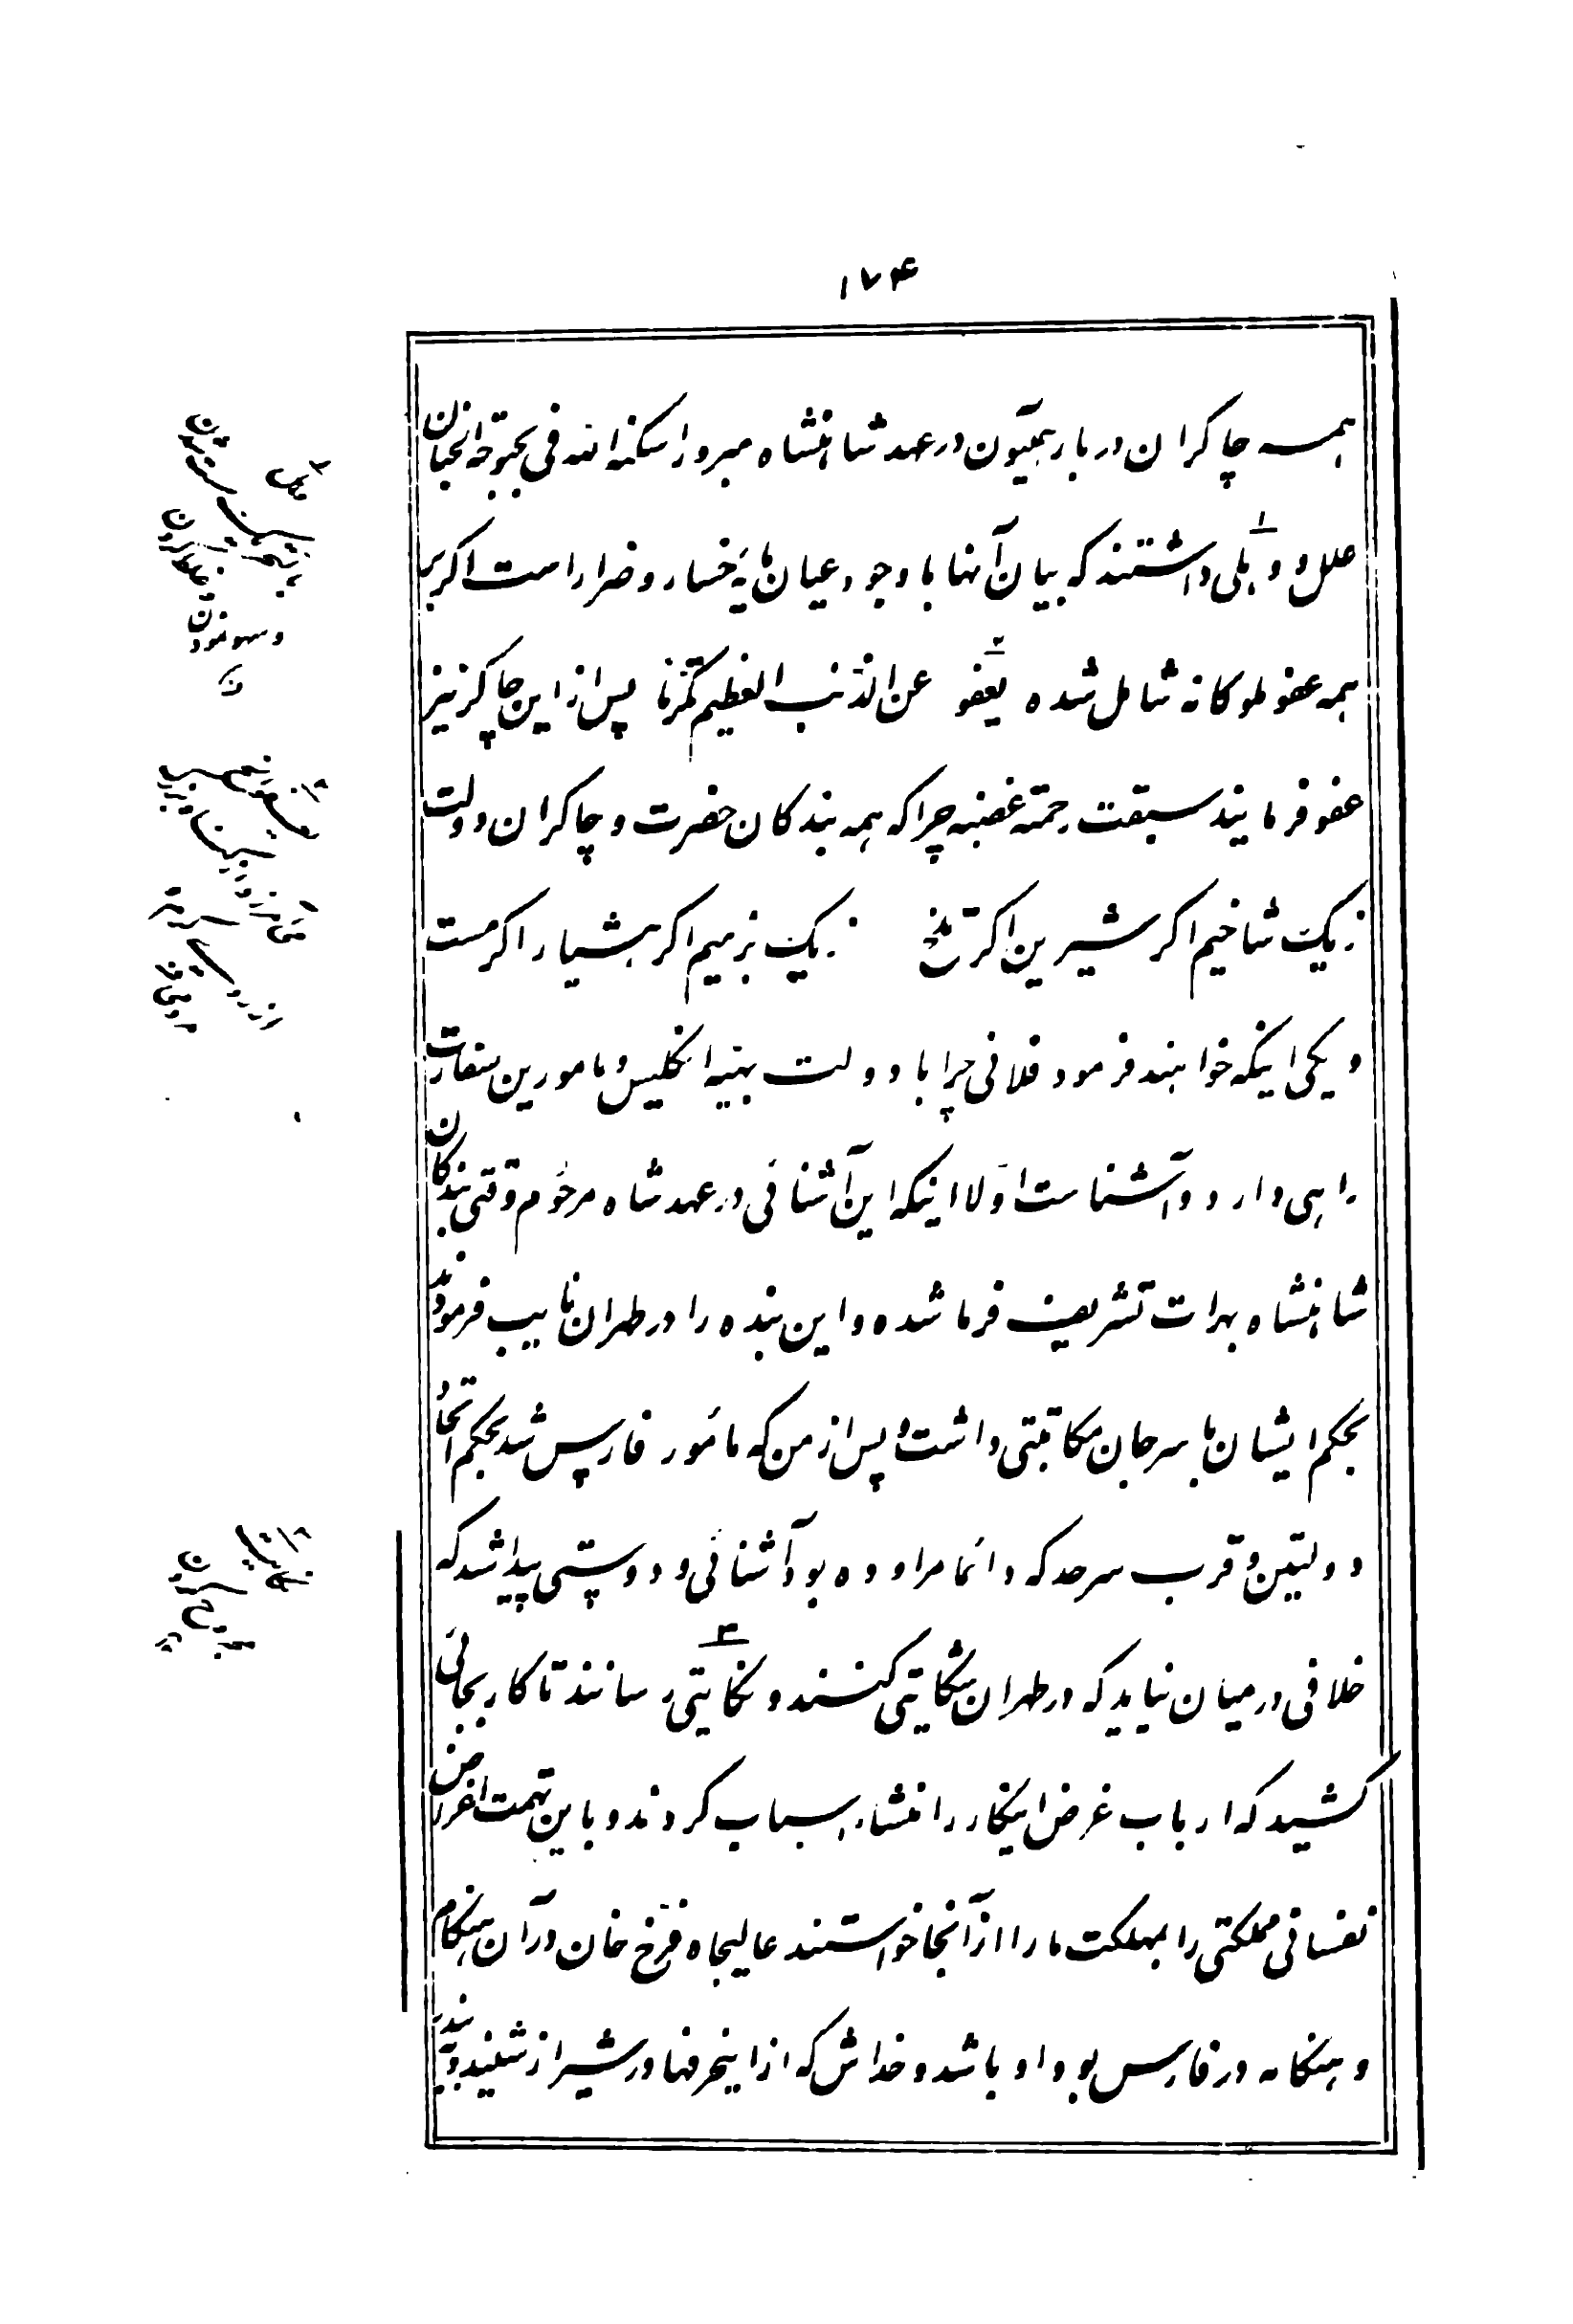 ۱۷۴
همه چاکران دربار همیون در عهد شاهنشاه مبرور اسکنه الله فی بحبوحة الجنان
علل و وهلی داشتند که بیان آنها با وجود عیان مایهٔ خسار و ضرار است اگر بر
همه عفو ملوکانه شامل شده یعفو عن الذنب العظیم تکرما پس از این چاکر نیز
عفو فرمایند سبقت رحمته غضبه چراکه همه بندکان حضرت و چاکران دولت
ز یک شاخیم اکر شیرین اکر تلخ ز یک بزمیم اکر هشیار اکر مست
و یکی اینکه خواهند فرمود فلانی چرا با دولت بهیه انکلیس و مامورین سفارت
راهی دارد و آشناست اولا اینکه این آشنائی در عهد شاه مرحوم وقتی بندکان
شاهنشاه بهرات تشریف فرما شده و این بنده را در طهران نایب فرمودند
بحکم ایشان با سرجان مکاتبتی داشت و پس از من که مأمور فارس شد بحکم اتحاد
دولتین و قرب سرحد که دائما مراوده بود آشنائی و دوستی پیدا شد که
خلافی در میان نیاید که در طهران شکایتی کنند و نکایتی رسانند تا کار بجائی
کشید که ارباب غرض اینکار را منشاء اسباب کردند و باین تهمت اغراض
نفسانی مملکتی را بمهلکت ما را از آنجا خواستند عالیجاه فرخ خان در آن هنکام
و هنکامه در فارس بود او باشد و خداش که از اینحرفها در شیراز شنید و دید
و سهو نمودن